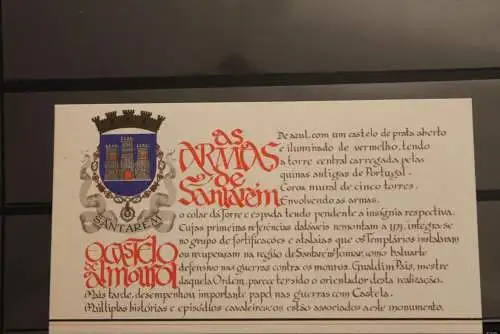 SANTARÉM
As
ARMAS
de
Santarém
De azul, com um castelo de prata aberto
e iluminado de vermelho, tendo
a torre central carregada pelas
quinas antigas de Portugal.
Coroa mural de cinco torres.
Envolvendo as armas,
o colar da Torre e espada tendo pendente a insígnia respectiva.
O Castelo
de
Almourol
Cujas primeiras referências datáveis remontam a 1171, integra-se
no grupo de fortificações e atalaias que os Templários instalavam
ou recuperavam na região de Santarém-Tomar, como baluarte
defensivo nas guerras contra os mouros. Gualdim Pais, mestre
daquela Ordem, parece ter sido o orientador desta realização.
Mais tarde, desempenhou importante papel nas guerras com Castela.
Múltiplas histórias e episódios cavaleirescos estão associados a este monumento.